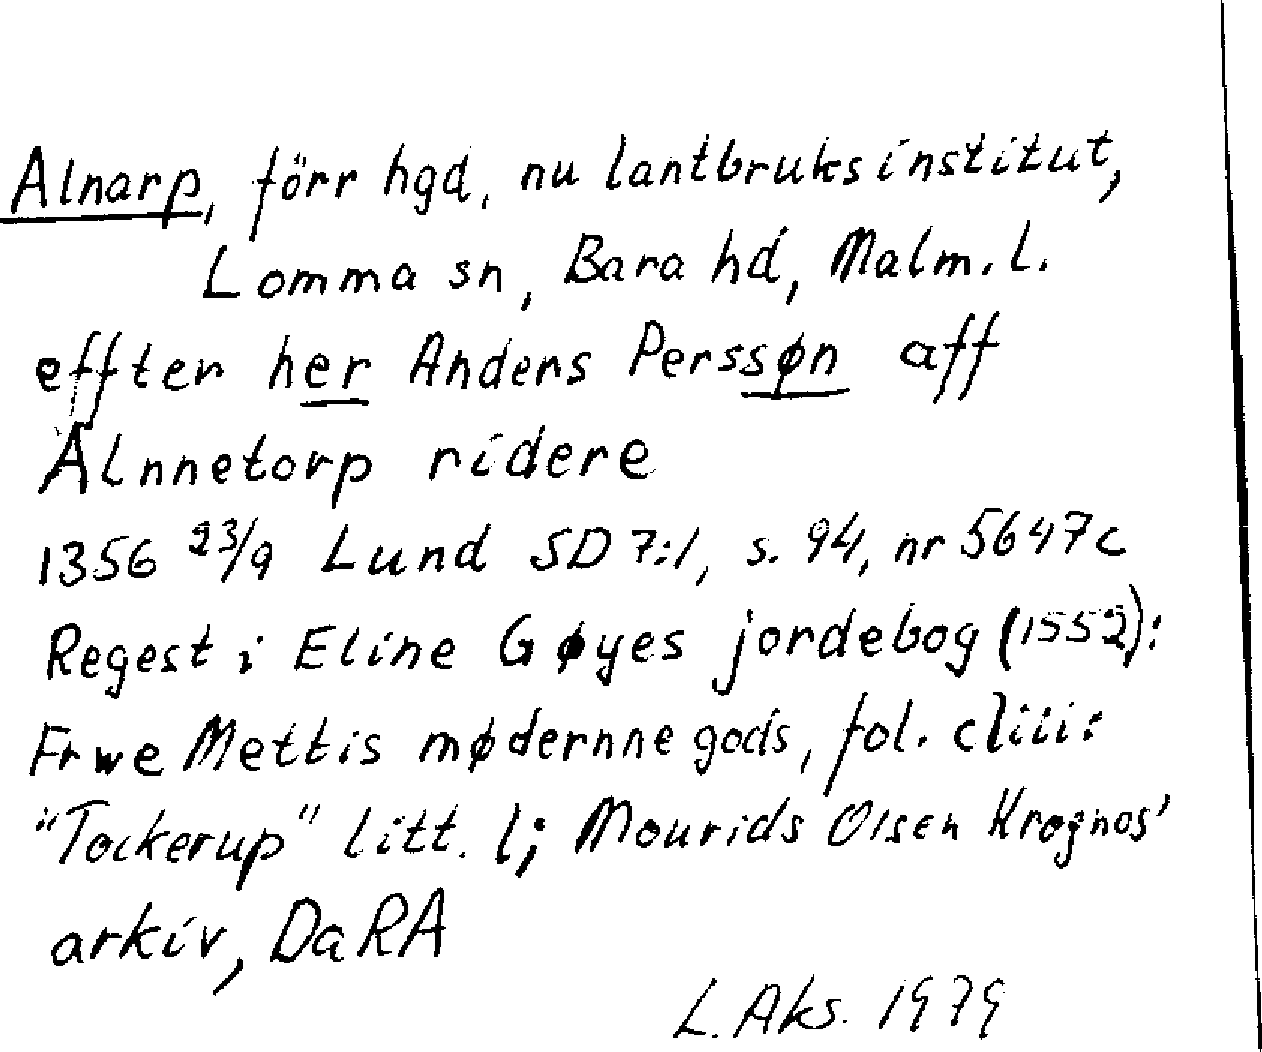 Alnarp, förr hgd, nu lantbruksinstitut,
Lomma sn, Bara hd, Malm. l.
effter her Anders Perssøn aff
Alnnetorp ridere
1356 23/9 Lund SD 7:1, s. 94, nr 5647c
Regest i Eline Gøyes jordebog (1552):
Frwe Mettis mødernne gods, fol. cliii:
"Tockerup" litt. l; Mourids Olsen Krognos'
arkiv, DaRA
L. Aks. 1979